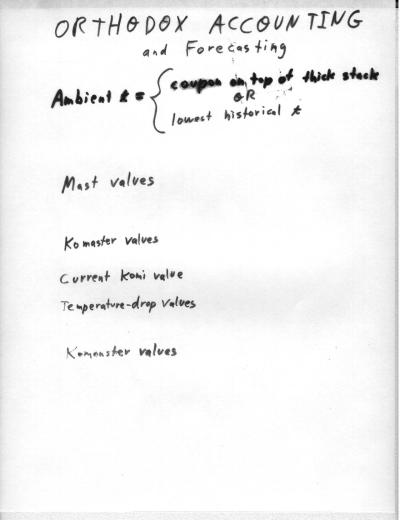 ORTHODOX ACCOUNTING
and Forecasting
Ambient t = { coupon on top of thick stack
OR
lowest historical t
Mast values
Komaster values
Current komi value
Temperature-drop values
Komonster values